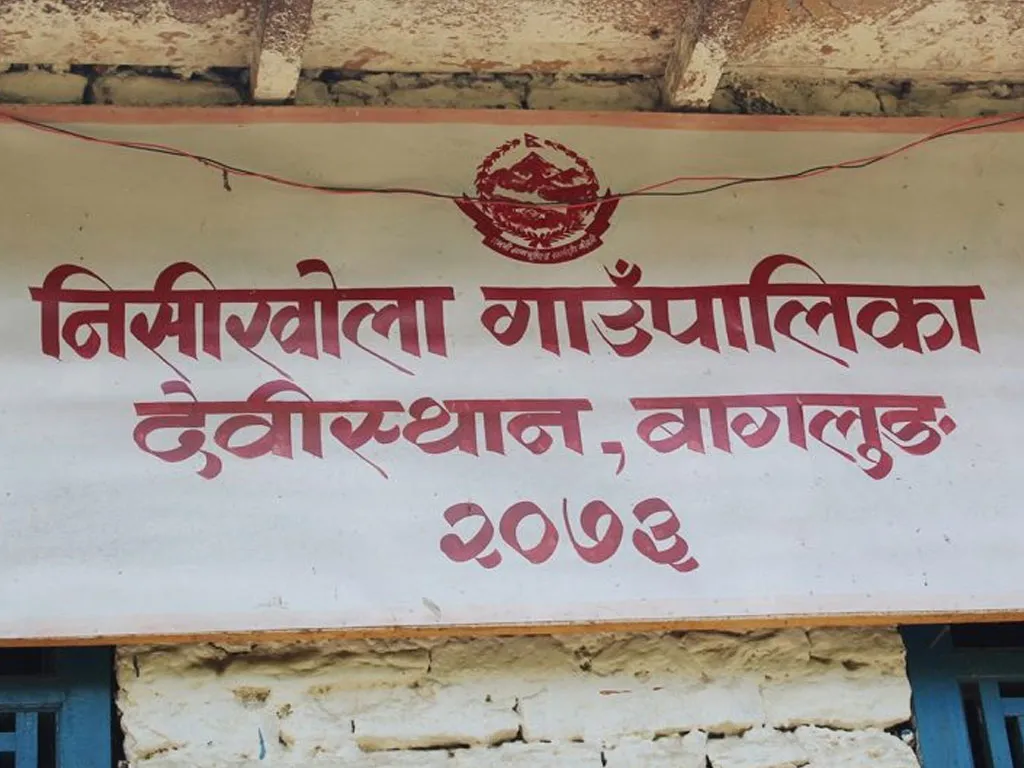 निसीखोला गाउँपालिका
देवीस्थान, बागलुङ
२०७३